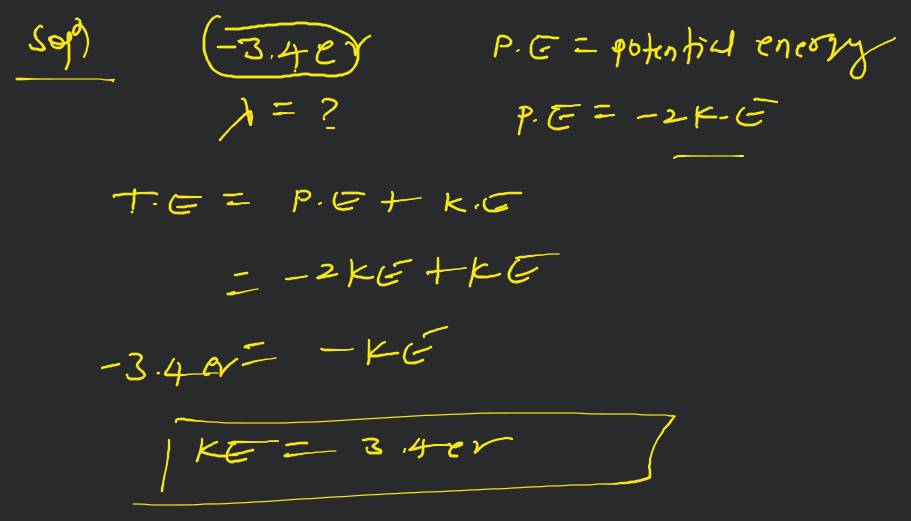 Sol⁹ -3.4 eV P.E = potential energy
λ = ? P.E = -2K.E
T.E = P.E + K.E
= -2KE + KE
-3.4 eV = -KE
KE = 3.4 eV